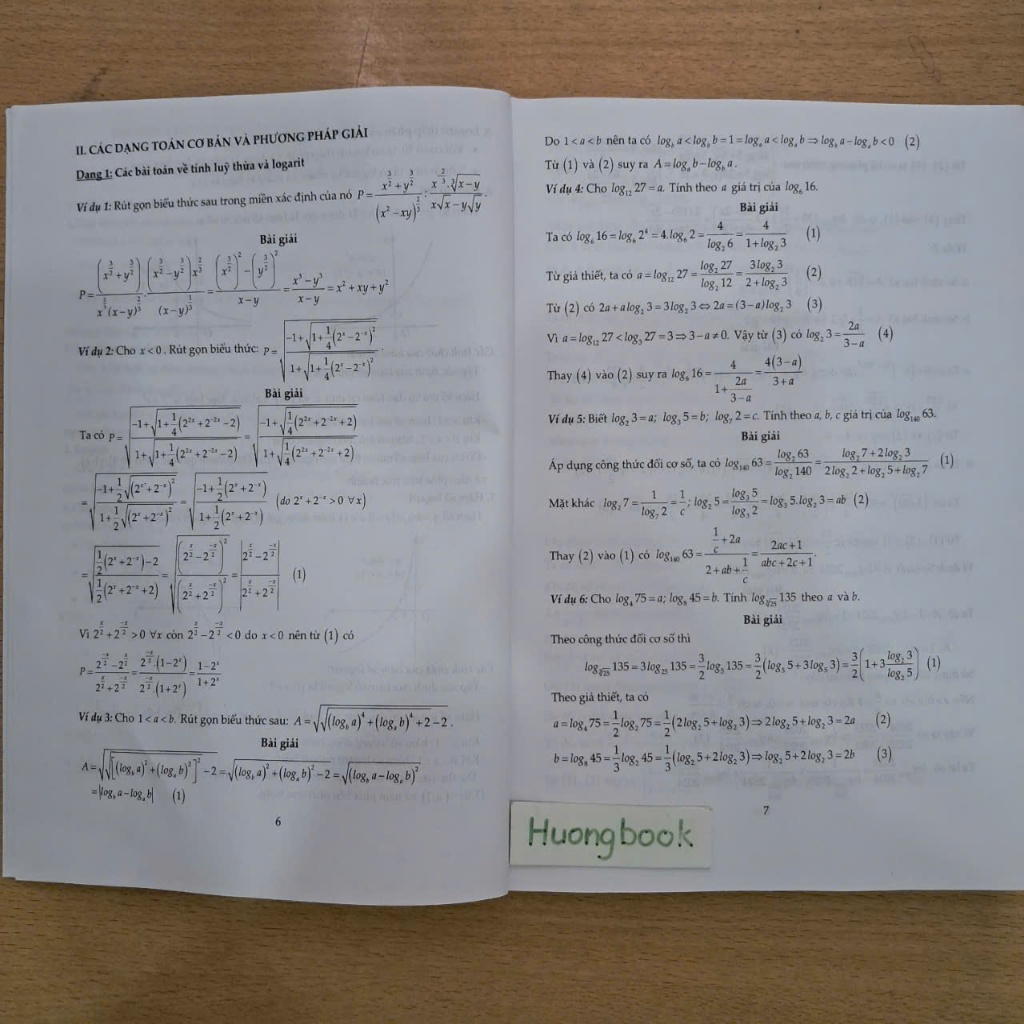 II. CÁC DẠNG TOÁN CƠ BẢN VÀ PHƯƠNG PHÁP GIẢI
Dạng 1: Các bài toán về tính luỹ thừa và logarit
Ví dụ 1: Rút gọn biểu thức sau trong miền xác định của nó P = (x^(3/2)+y^(3/2))/(x²−xy)^(2/3) : (x^(−2/3).∛(x−y))/(x√x−y√y).
Bài giải
P = ((x^(3/2)+y^(3/2))/(x^(2/3)(x−y)^(2/3))).((x^(3/2)−y^(3/2))x^(2/3)/(x−y)^(1/3)) = ((x^(3/2))²−(y^(3/2))²)/(x−y) = (x³−y³)/(x−y) = x²+xy+y²
Ví dụ 2: Cho x<0. Rút gọn biểu thức: P = √((−1+√(1+1/4(2^x−2^(−x))²))/(1+√(1+1/4(2^x−2^(−x))²))).
Bài giải
Ta có P = √((−1+√(1+1/4(2^(2x)+2^(−2x)−2)))/(1+√(1+1/4(2^(2x)+2^(−2x)−2)))) = √((−1+√(1/4(2^(2x)+2^(−2x)+2)))/(1+√(1/4(2^(2x)+2^(−2x)+2))))
= √((−1+1/2√((2^x+2^(−x))²))/(1+1/2√((2^x+2^(−x))²))) = √((−1+1/2(2^x+2^(−x)))/(1+1/2(2^x+2^(−x)))) (do 2^x+2^(−x)>0 ∀x)
= √((1/2(2^x+2^(−x)−2))/(1/2(2^x+2^(−x)+2))) = √((2^(x/2)−2^(−x/2))²/(2^(x/2)+2^(−x/2))²) = |(2^(x/2)−2^(−x/2))/(2^(x/2)+2^(−x/2))| (1)
Vì 2^(x/2)+2^(−x/2)>0 ∀x còn 2^(x/2)−2^(−x/2)<0 do x<0 nên từ (1) có
P = (2^(−x/2)−2^(x/2))/(2^(x/2)+2^(−x/2)) = (2^(−x/2).(1−2^x))/(2^(−x/2).(1+2^x)) = (1−2^x)/(1+2^x)
Ví dụ 3: Cho 1<a<b. Rút gọn biểu thức sau: A = √(√((log_b a)⁴+(log_a b)⁴+2)−2).
Bài giải
A = √(√([(log_b a)²+(log_a b)²]²)−2) = √((log_b a)²+(log_a b)²−2) = √((log_b a−log_a b)²)
= |log_b a−log_a b| (1)
6
Do 1<a<b nên ta có log_b a<log_b b=1=log_a a<log_a b⇒log_b a−log_a b<0 (2)
Từ (1) và (2) suy ra A=log_a b−log_b a.
Ví dụ 4: Cho log₁₂ 27=a. Tính theo a giá trị của log₆ 16.
Bài giải
Ta có log₆ 16=log₆ 2⁴=4.log₆ 2=4/(log₂ 6)=4/(1+log₂ 3) (1)
Từ giả thiết, ta có a=log₁₂ 27=(log₂ 27)/(log₂ 12)=(3log₂ 3)/(2+log₂ 3) (2)
Từ (2) có 2a+alog₂ 3=3log₂ 3⇔2a=(3−a)log₂ 3 (3)
Vì a=log₁₂ 27<log₃ 27=3⇒3−a≠0. Vậy từ (3) có log₂ 3=2a/(3−a) (4)
Thay (4) vào (2) suy ra log₆ 16=4/(1+2a/(3−a))=4(3−a)/(3+a)
Ví dụ 5: Biết log₂ 3=a; log₃ 5=b; log₇ 2=c. Tính theo a, b, c giá trị của log₁₄₀ 63.
Bài giải
Áp dụng công thức đổi cơ số, ta có log₁₄₀ 63=(log₂ 63)/(log₂ 140)=(log₂ 7+2log₂ 3)/(2log₂ 2+log₂ 5+log₂ 7) (1)
Mặt khác log₂ 7=1/(log₇ 2)=1/c; log₂ 5=(log₃ 5)/(log₃ 2)=log₃ 5.log₂ 3=ab (2)
Thay (2) vào (1) có log₁₄₀ 63=(1/c+2a)/(2+ab+1/c)=(2ac+1)/(abc+2c+1).
Ví dụ 6: Cho log₄ 75=a; log₈ 45=b. Tính log_(∛25) 135 theo a và b.
Bài giải
Theo công thức đổi cơ số thì
log_(∛25) 135=3log₂₅ 135=3/2 log₅ 135=3/2(log₅ 5+3log₅ 3)=3/2(1+3(log₂ 3)/(log₂ 5)) (1)
Theo giả thiết, ta có
a=log₄ 75=1/2 log₂ 75=1/2(2log₂ 5+log₂ 3)⇒2log₂ 5+log₂ 3=2a (2)
b=log₈ 45=1/3 log₂ 45=1/3(log₂ 5+2log₂ 3)⇒log₂ 5+2log₂ 3=2b (3)
7
Huongbook